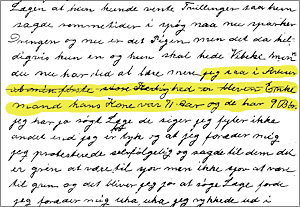 Lægen at hun kunde vente Trillinger saa hun
sagde sommetider i spøg naa nu sparker
Drengen og nu er det Pigen men det da hel-
digvis kun en og hun skal hede Vibeke men
du nu har tid at læse mere jeg saa i
min første store
mand hans Kone var 71 Aar og de har 9 Børn
jeg har jo søgt Læge de siger jeg fyler ikke
andet end jeg er tyk og at jeg foræder mig
jeg protesterede selfølgelig og sagde til dem det
er gren at være til sjov men ikke sjov at være
til grin og det bliver jeg jo at søge Læge fordi
jeg foræder mig uha uha jeg rykkede ud i